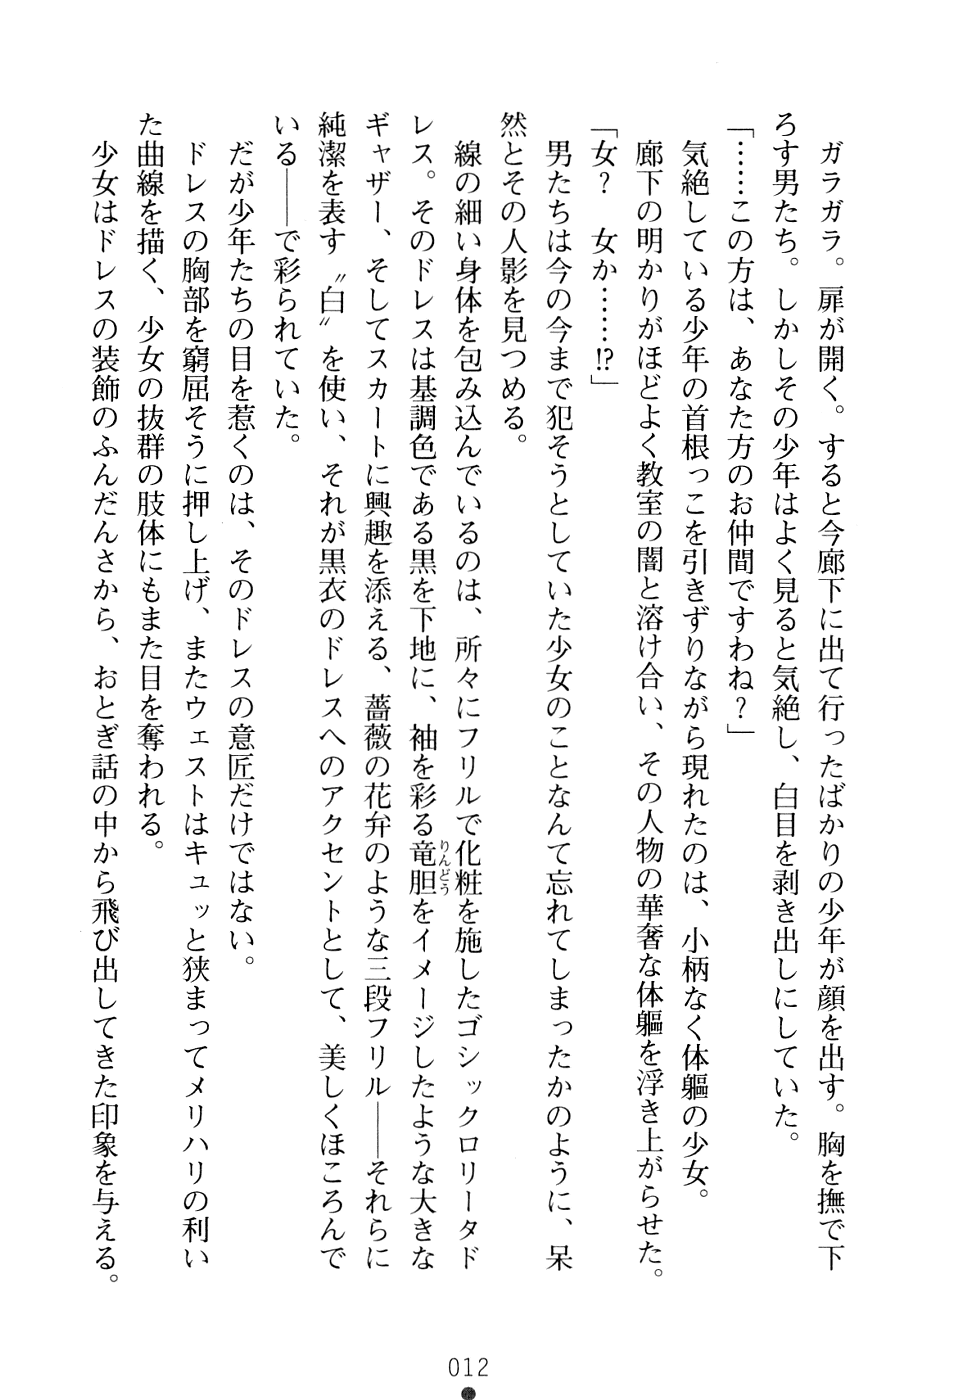 ガラガラ。扉が開く。すると今廊下に出て行ったばかりの少年が顔を出す。胸を撫で下
ろす男たち。しかしその少年はよく見ると気絶し、白目を剥き出しにしていた。
「……この方は、あなた方のお仲間ですわね？」
気絶している少年の首根っこを引きずりながら現れたのは、小柄なく体軀の少女。
廊下の明かりがほどよく教室の闇と溶け合い、その人物の華奢な体軀を浮き上がらせた。
「女？　女か……⁉」
男たちは今の今まで犯そうとしていた少女のことなんて忘れてしまったかのように、呆
然とその人影を見つめる。
線の細い身体を包み込んでいるのは、所々にフリルで化粧を施したゴシックロリータド
レス。そのドレスは基調色である黒を下地に、袖を彩る竜胆をイメージしたような大きな
りんどう
ギャザー、そしてスカートに興趣を添える、薔薇の花弁のような三段フリル――それらに
純潔を表す〝白〟を使い、それが黒衣のドレスへのアクセントとして、美しくほころんで
いる――で彩られていた。
だが少年たちの目を惹くのは、そのドレスの意匠だけではない。
ドレスの胸部を窮屈そうに押し上げ、またウェストはキュッと狭まってメリハリの利い
た曲線を描く、少女の抜群の肢体にもまた目を奪われる。
少女はドレスの装飾のふんだんさから、おとぎ話の中から飛び出してきた印象を与える。
012